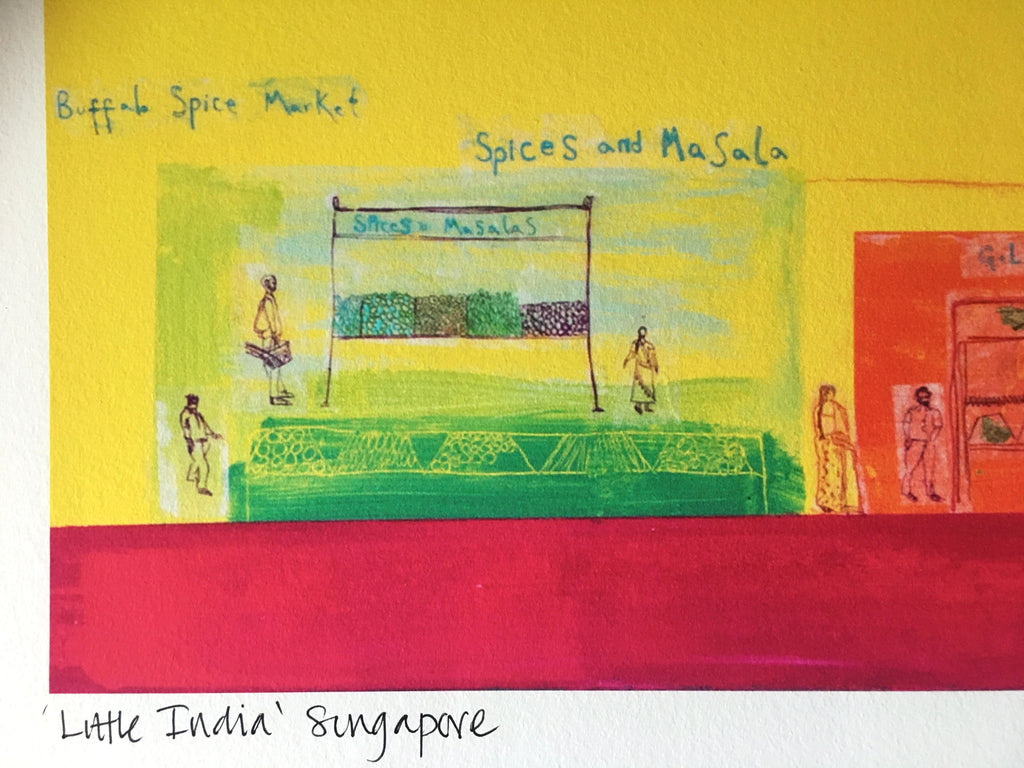 Buffalo Spice Market
Spices and Masala
Spices & Masalas
G.L
'Little India' Singapore